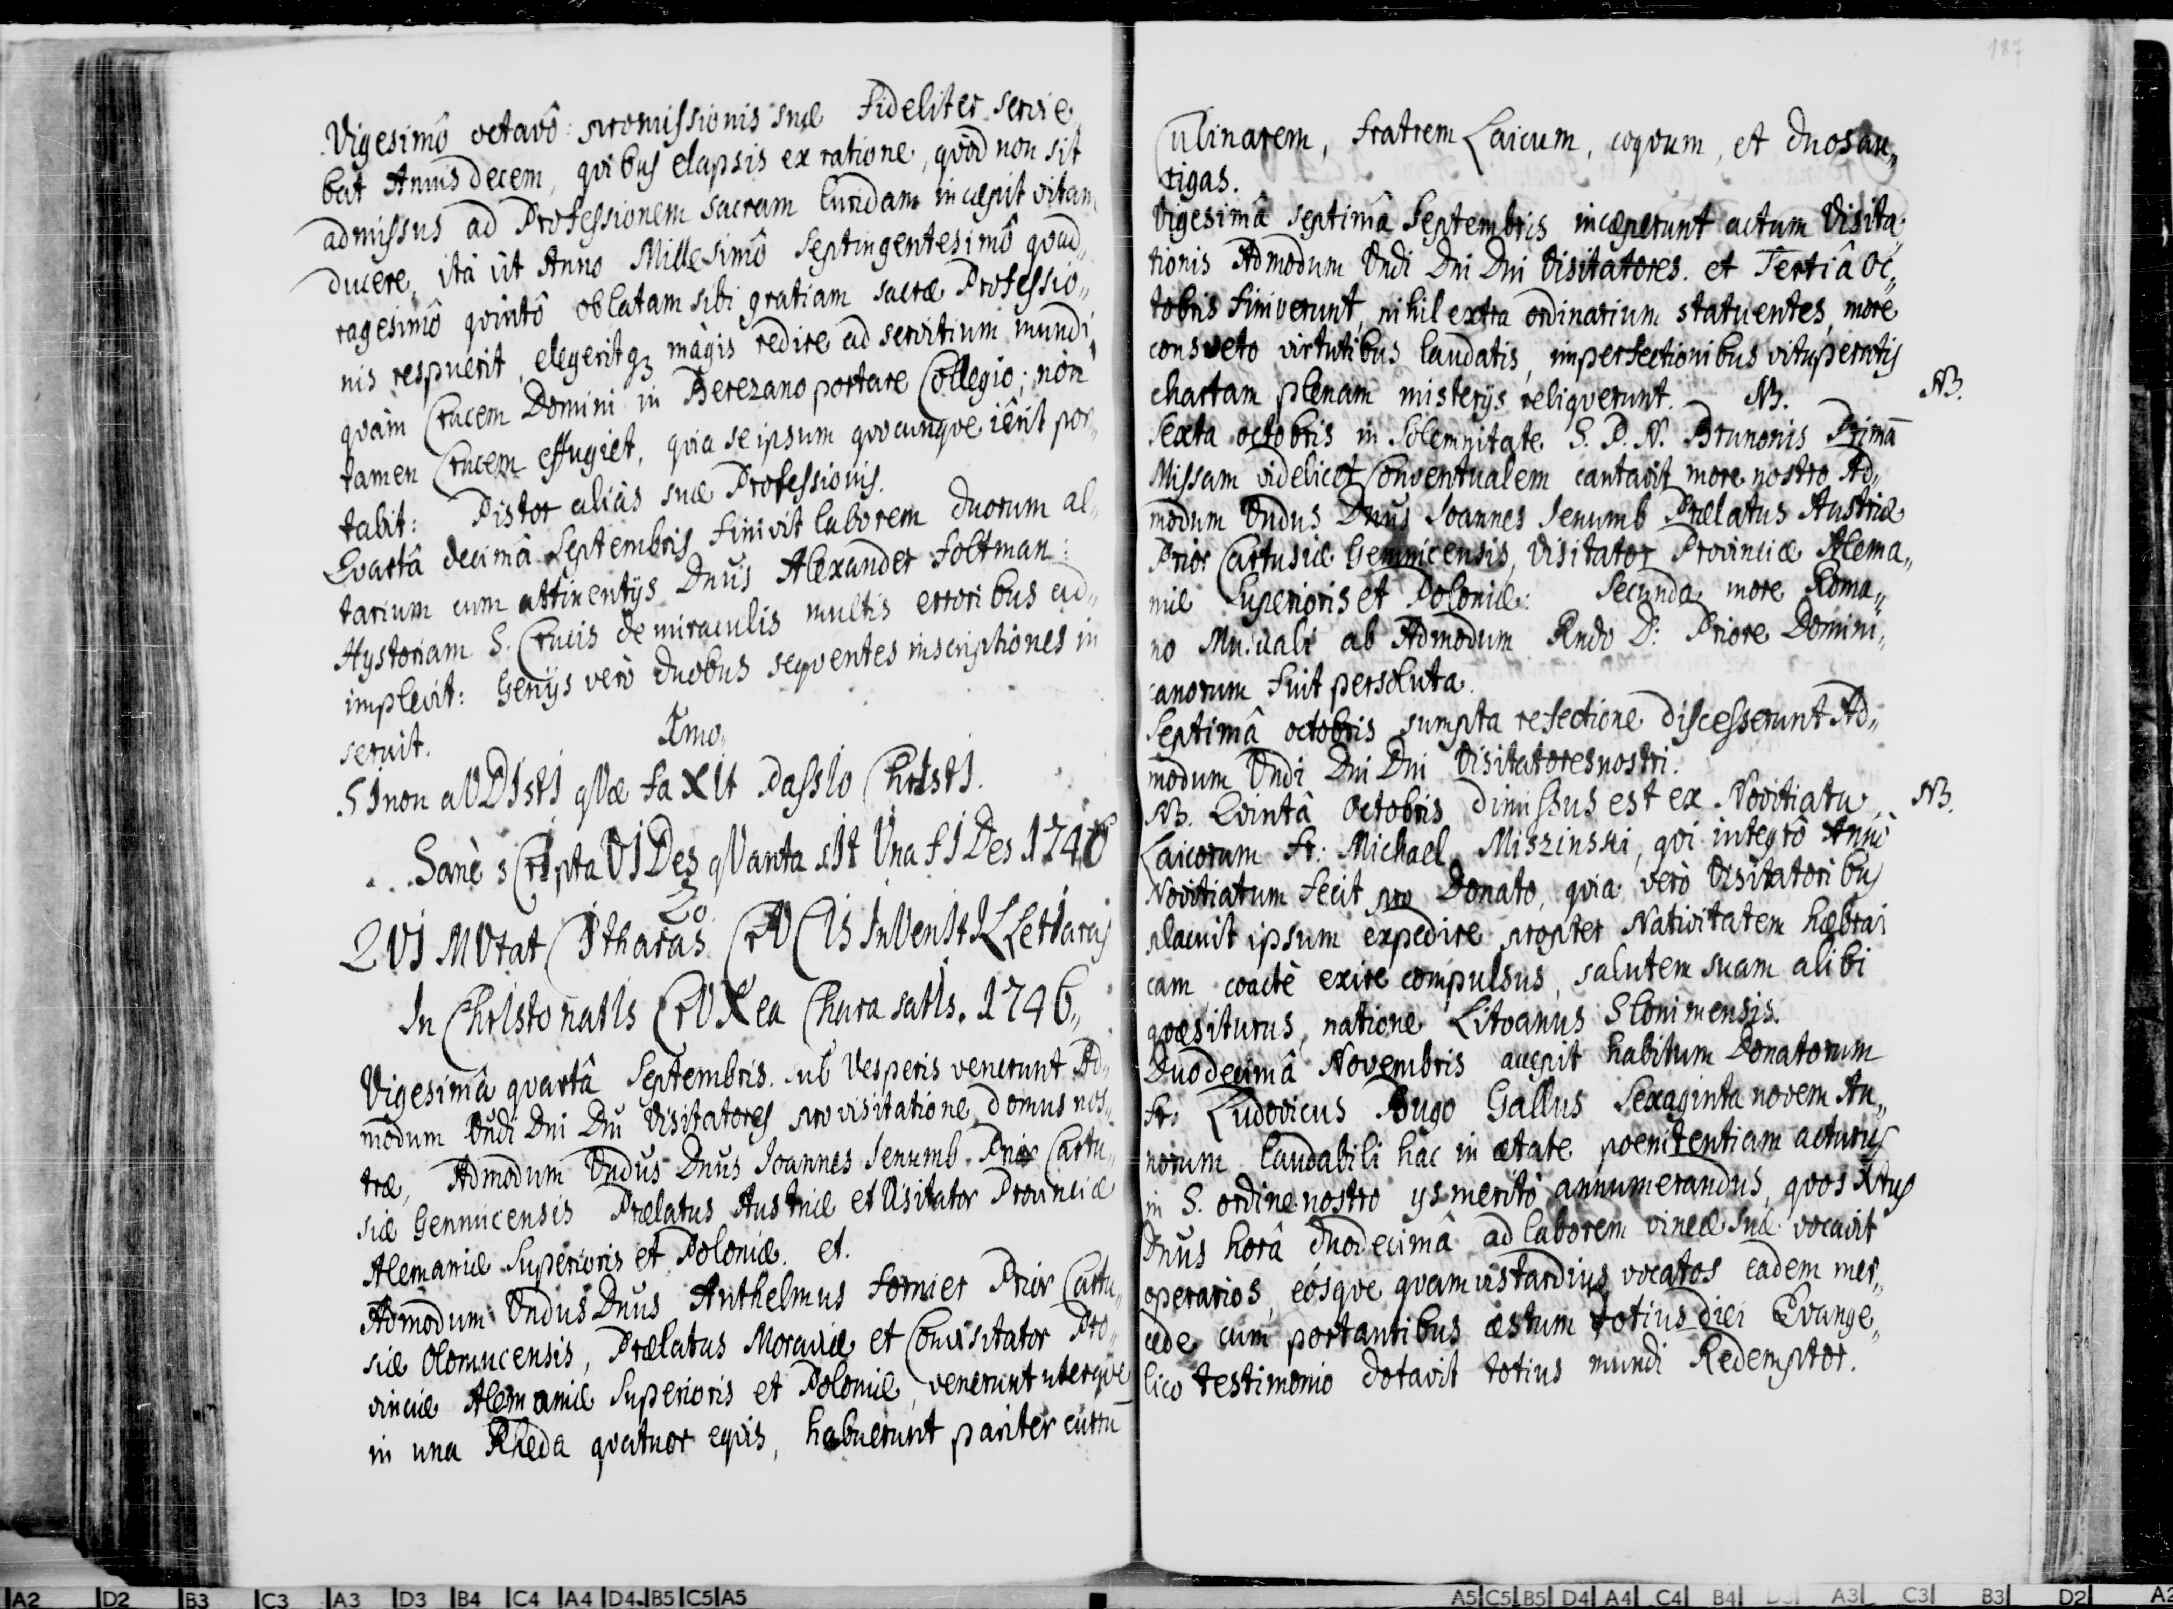 Vigesimô octavô: promissionis suæ fideliter servie„
bat Annis decem, qvibus elapsis ex ratione, qvòd non sit
admissus ad Professionem sacram luridam incæpit vitam
ducere, ità ùt Anno Millesimô Septingentesimô qvad„
ragesimô qvintô oblatam sibi gratiam sacræ Professio„
nis respuerit, elegeritqʒ màgis redire ad servitium mundi,
qvàm Crucem Domini in Berezano portare Collegio; nòn
tamen Crucem effugiet, qvia se ipsum qvocunqve iêrit por„
tabit: Pistor aliàs suæ Professionis.
Qvartâ decimâ Septembris finivit laborem duorum al„
tarium cum attinentijs Dnus Alexander Foltman:
Hystoriam S. Crucis de miraculis multis erroribus ad„
implevit: Genijs verò duobus seqventes inscriptiones in
seruit.
Imo.
SInon aUDIstI qVæ faXIt PassIo ChrIstI.
Sanè sCrIpta VIDes qVanta sIt Vna fIDes 1746
2o.
QVI MVtat CItharas CrVCIs InVenIt ILLe tIaras
In ChrIsto natIs CrVX ea Chara satIs. 1746„
Vigesimâ qvartâ Septembris. sub Vesperis venerunt Ad„
modum Vndi Dni Dni Visitatores pro visitatione domus nos„
træ, Admodum Vndus Dnus Joannes Jenumb Prior Cartu„
siæ Gemnicensis Prælatus Austriæ et Visitator Provinciæ
Alemaniæ Superioris et Poloniæ. et.
Admodum Vndus Dnus Anthelmus Fornier Prior Cartu„
siæ Olomucensis, Prælatus Moraviæ et Convisitator Pro„
vinciæ Alemaniæ Superioris et Poloniæ, venerunt uterqve
in una Rheda qvatuor eqvis, habuerunt pariter currū
187
Culinarem, fratrem Laicum, coqvum, et duos au„
rigas.
Vigesimâ septimâ Septembris incæperunt actum Visita„
tionis Admodum Vndi Dni Dni Visitatores. et Tertiâ Oc„
tobris finiverunt, nihil extra ordinarium statuentes, more
consveto virtutibus laudatis, imperfectionibus vituperatis
chartam plenam misterijs reliqverunt. NB. NB.
Sexta octobris in Solemnitate S. P. N. Brunonis Primā
Missam videlicet Conventualem cantavit more nostro Ad„
modum Vndus Dnus Joannes Jenumb Prælatus Austriæ
Prior Cartusiæ Gemnicensis, Visitator Provinciæ Alema„
niæ Superioris et Poloniæ: Secunda more Roma„
no ab Admodum Rndo D: Priore Domini„
canorum fuit persoluta.
Septimâ octobris sumpta refectione discesserunt Ad„
modum Vndi Dni Dni Visitatores nostri.
NB. Qvintâ Octobris dimissus est ex Novitiatu NB.
Laicorum Fr: Michael Miszinski, qvi integrô Annô
Novitiatum fecit pro Donato, qvia verò Visitatoribus
placuit ipsum expedire propter Nativitatem hæbrai
cam, coactè exire compulsus, salutem suam alibi
qvæsiturus, natione Litvanus Slonimensis.
Duodecimâ Novembris accepit habitum Donatorum
Fr. Ludovicus Bugo Gallus Sexaginta novem An„
norum laudabili hac in ætate poenitentiam acturus
in S. ordine nostro ys meritò annumerandus, qvos Xtus
Dnus horâ duodecimâ ad laborem vineæ suæ vocavit
operarios, eosqve qvamvis tardius vocatos eadem mer„
cede cum portantibus æstum totius diei Evange„
lico testimonio dotavit totius mundi Redemptor.
A2 D2 B3 C3 A3 D3 B4 C4 A4 D4 B5 C5 A5 A5 C5 B5 D4 A4 C4 B4 D3 A3 C3 B3 D2 A2